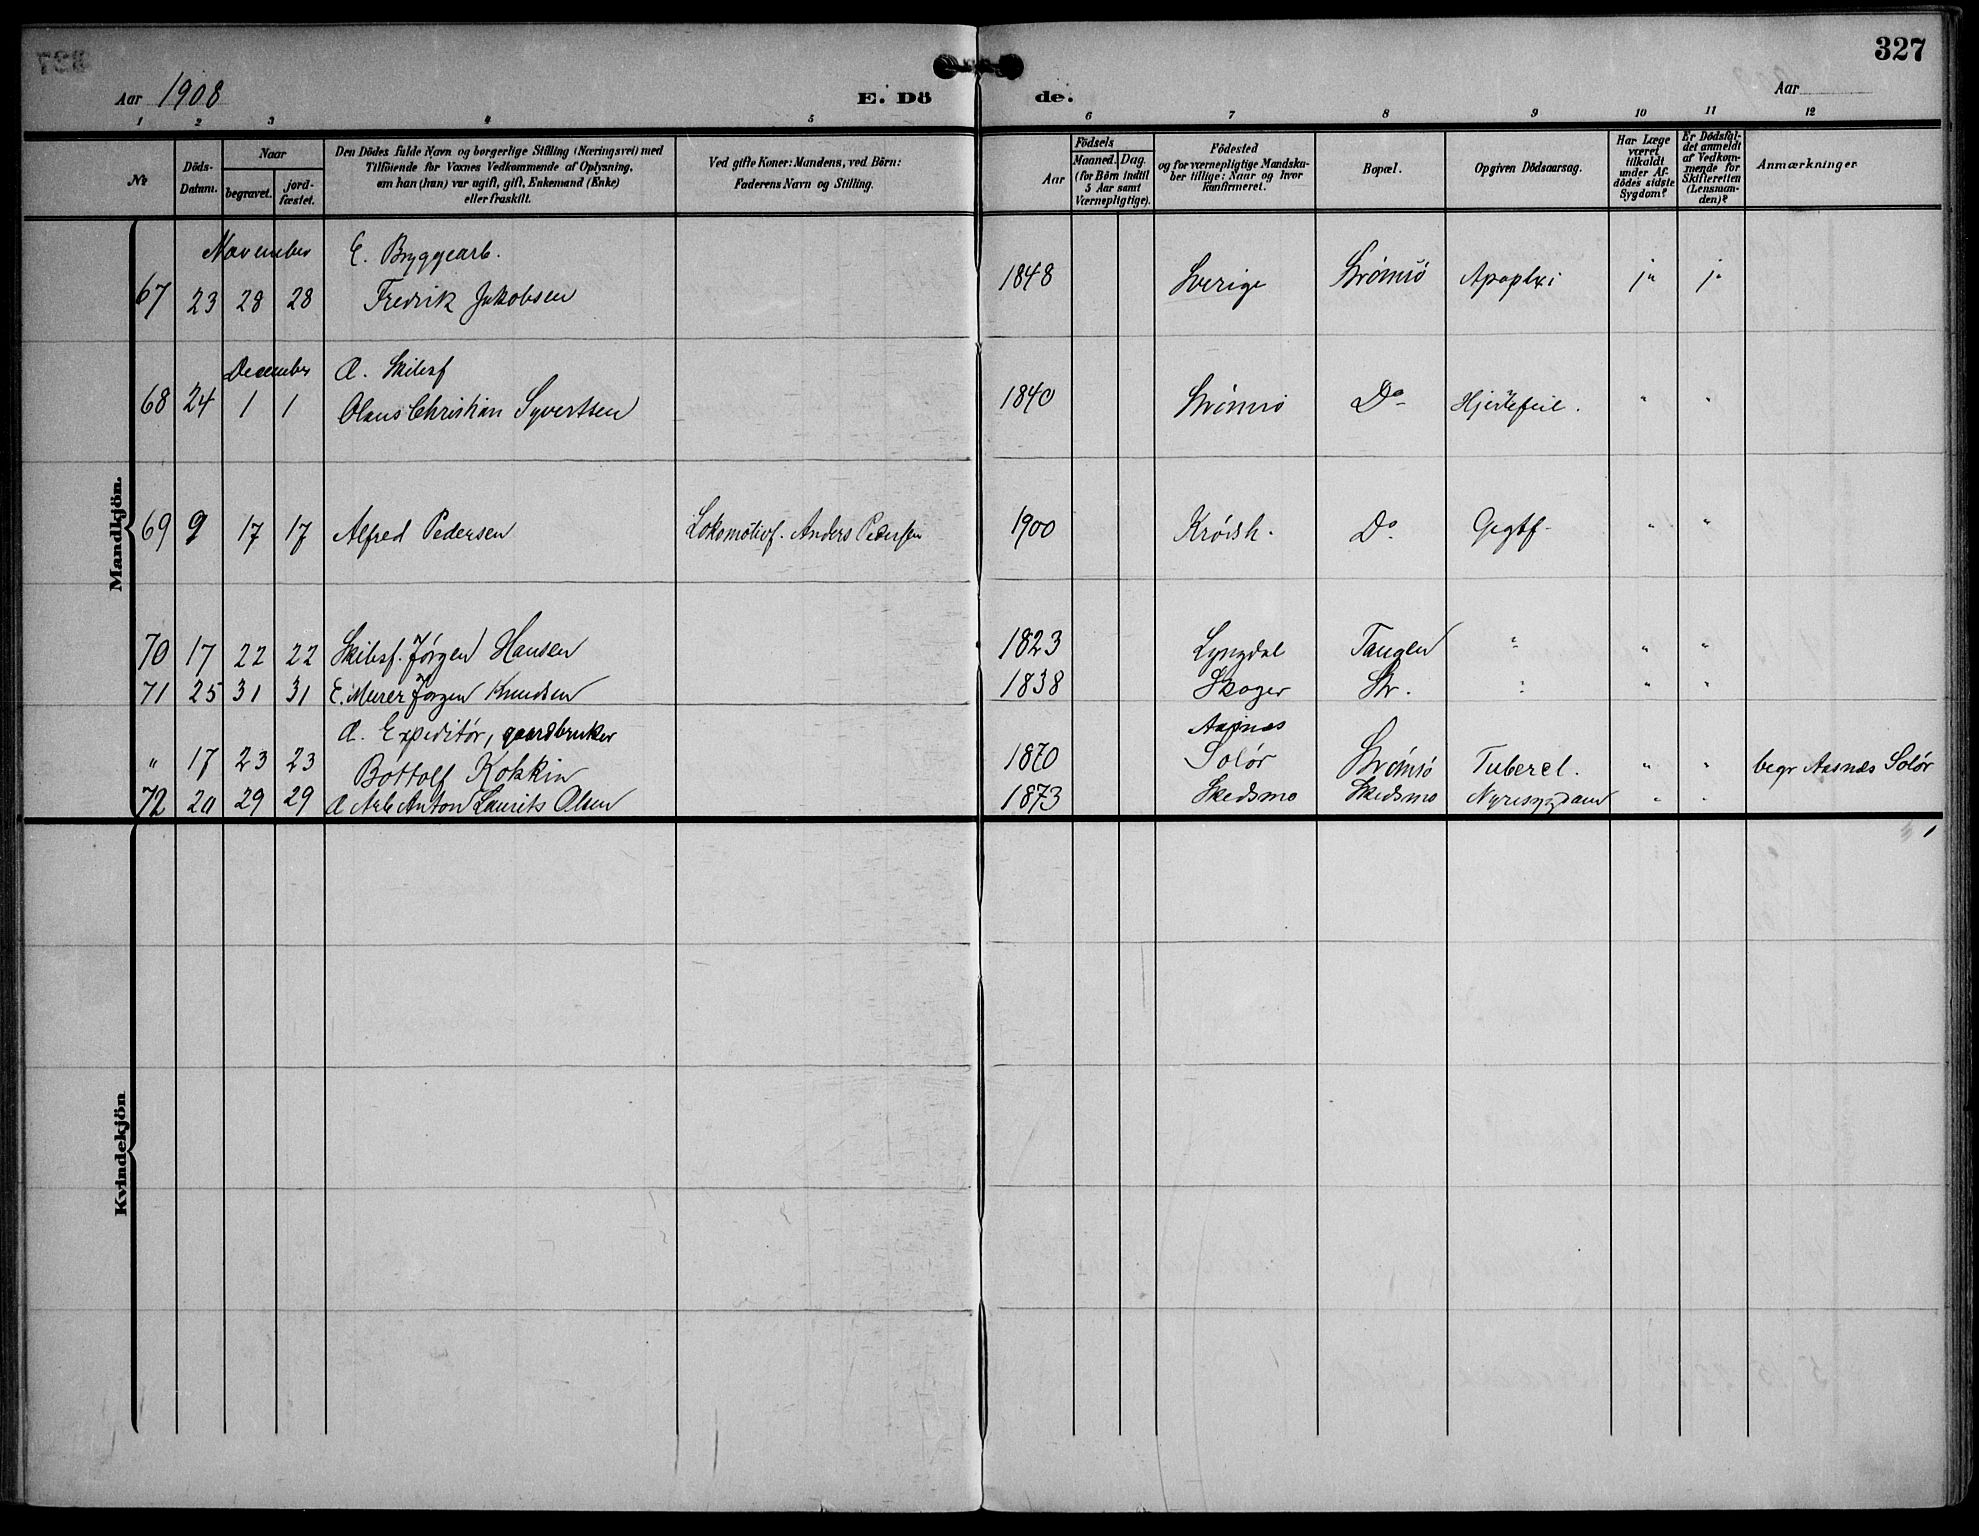 327
Aar 1908
E. Dö de.
Aar
1 2 3 4 5 6 7 8 9 10 11 12
Nr.
Döds-Datum.
Naar
begravet.
jord-fæstet.
Den Dödes fulde Navn og borgerlige Stilling (Næringsvei) med
Tilföiende for Voxnes Vedkommende af Oplysning,
om hun (han) var ugift, gift, Enkemand (Enke)
eller fraskilt.
Ved gifte Koner: Mandens, ved Börn:
Faderens Navn og Stilling.
Födsels
Aar
Maaned. Dag.
(for Börn indtil
5 Aar samt
Værnepligtige).
Födested
og for værnepligtige Mandska-
ber tillige: Naar og hvor
konfirmeret.
Bopæl.
Opgiven Dödsaarsag.
Har Læge
været
tilkaldt
under Af-
dödes sidste
Sygdom?
Er Dödsfal-
det anmeldt
af Vedkom-
mende for
Skifteretten
(Lensman-
den)?
Anmærkninger
Mandkjön.
November E. Bryggearb.
67 23 28 28 Fredrik Jakobsen 1848 Sverige Strømsö Apoplexi ja ja
December G. Skibsf
68 24 1 1 Olaus Christian Syvertsen 1840 Strømsö Do Hjertefeil. " "
69 9 17 17 Alfred Pedersen Lokomotivf. Anders Pedersen 1900 Krødsh. Do Gigtf. " "
70 17 22 22 Skibsf. Jørgen Hansen 1823 Lyngdal Tangen " " "
71 25 31 31 E. Murer Jørgen Knudsen 1838 Skoger Str. " " "
G. Expeditør, gaardbruker Aasnes
" 17 23 23 Bottolf Kokkin 1870 Solør Strømsö Tubercl. " " begr Aasnæs Solør
72 20 29 29 G Arb Anton Laurits Olsen 1873 Skedsmo Skedsmo Nyresygdom " "
Kvindekjön